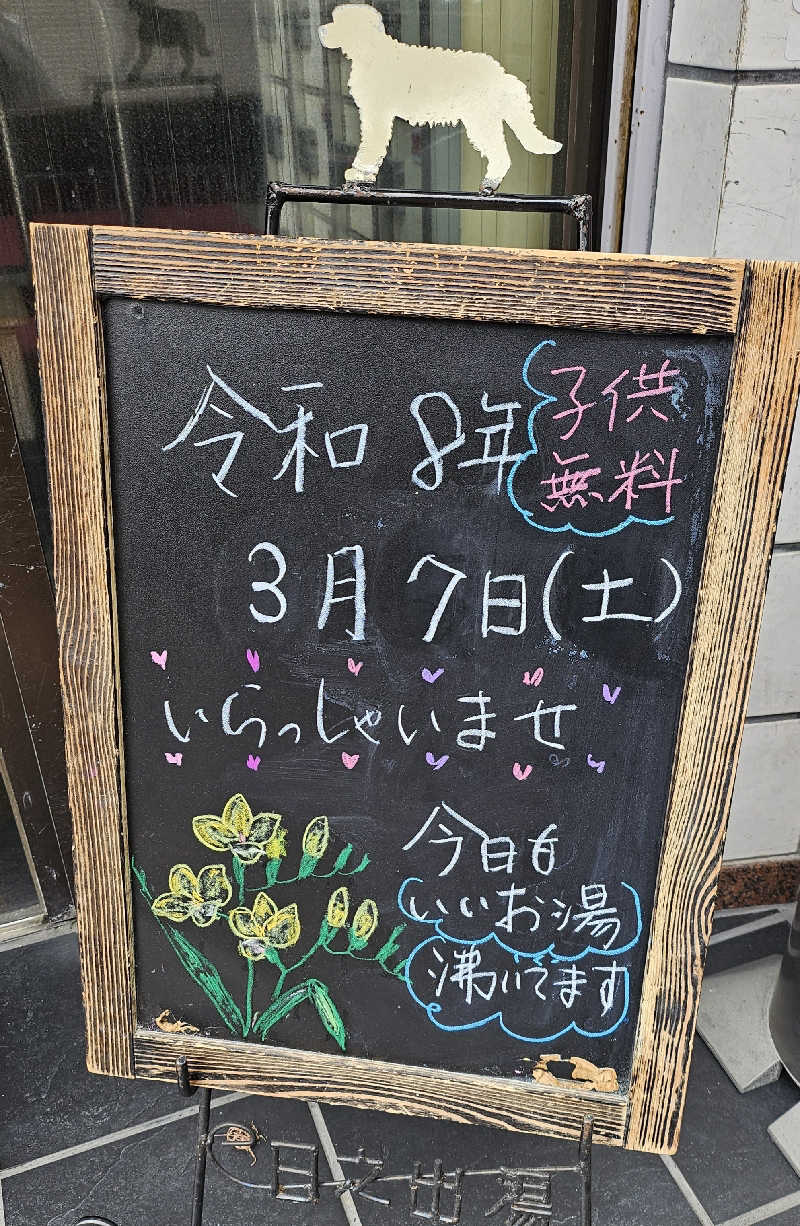 令和8年
子供
無料
3月7日(土)
いらっしゃいませ
今日も
いいお湯
沸いてます
日之出湯